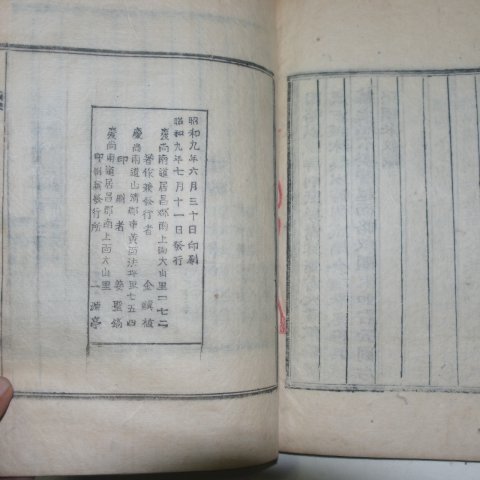 昭和九年六月三十日印刷
昭和九年七月十一日發行
慶尚南道居昌郡南上面大山里一七二
著作兼發行者 金
慶尚南道山淸郡 七五四
印刷者 姜聖
慶尚南道居昌郡南上面大山里
印刷兼發行所 一源亭